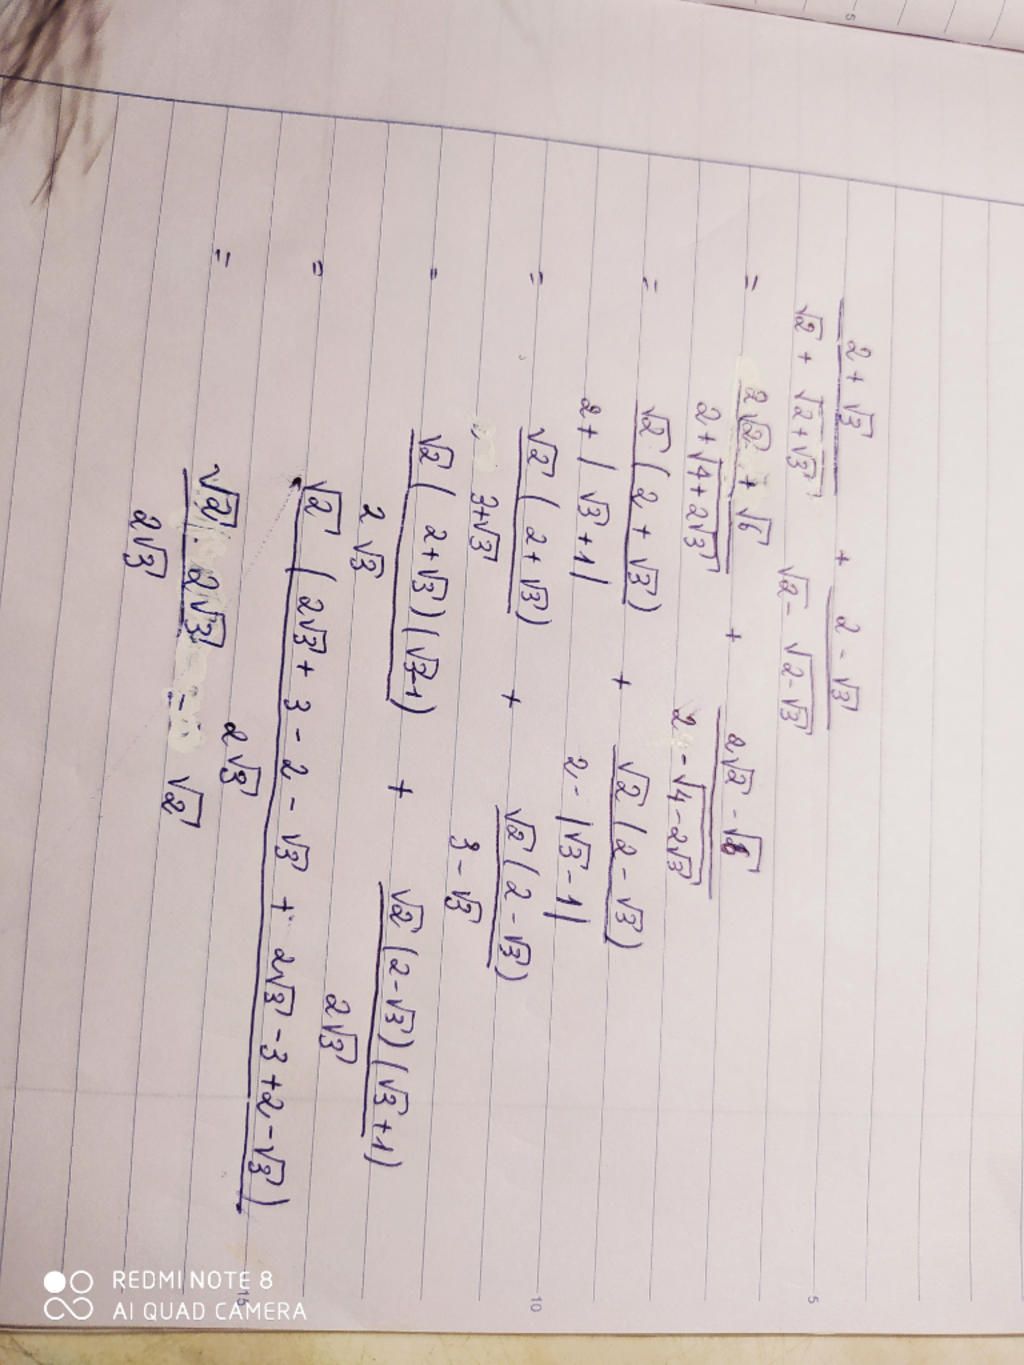 5
(2 + √3)/(√2 + √(2+√3)) + (2 - √3)/(√2 - √(2-√3))
= (2√2 + √6)/(2 + √(4+2√3)) + (2√2 - √6)/(2 - √(4-2√3))
= √2(2 + √3)/(2 + |√3+1|) + √2(2 - √3)/(2 - |√3-1|)
= √2(2+√3)/(3+√3) + √2(2-√3)/(3-√3)
= √2(2+√3)(√3-1)/(2√3) + √2(2-√3)(√3+1)/(2√3)
= √2(2√3 + 3 - 2 - √3 + 2√3 - 3 + 2 - √3)/(2√3)
= (√2 · 2√3)/(2√3) = √2
5
10
15
REDMI NOTE 8
AI QUAD CAMERA